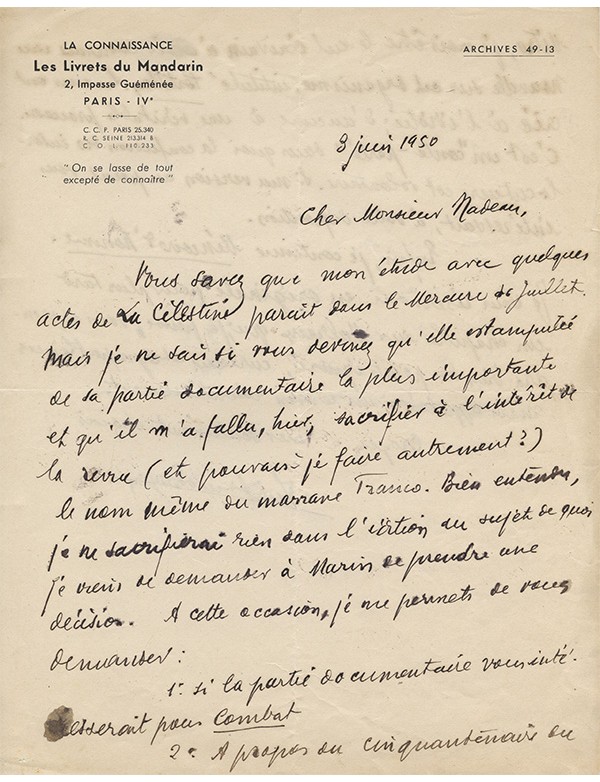 LA CONNAISSANCE
Les Livrets du Mandarin
2, Impasse Guéménée
PARIS - IVe
C. C. P. PARIS 25.340
R. C. SEINE 213314 B
C. O. L. 110.233
"On se lasse de tout
excepté de connaître"
ARCHIVES 49-13
3 juin 1950
Cher Monsieur Nadeau,
Vous savez que mon étude avec quelques
actes de La Célestine paraît dans le Mercure de Juillet.
Mais je ne sais si vous devinez qu'elle est amputée
de sa partie documentaire la plus importante
et qu'il m'a fallu, hier, sacrifier à l'intérêt de
la revue (et pouvais-je faire autrement?)
le nom même du marrane Franco. Bien entendu,
je ne sacrifierai rien dans l'édition au sujet de quoi
je viens de demander à Marin de prendre une
décision. A cette occasion, je me permets de vous
demander :
1° si la partie documentaire vous inté-
resserait pour Combat
2° A propos du cinquantenaire du